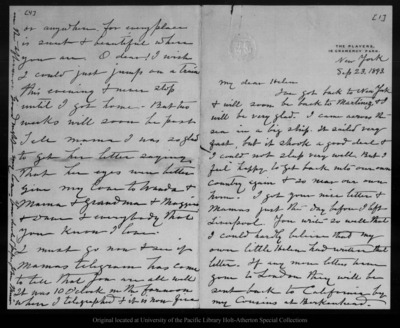 THE PLAYERS,
16 GRAMERCY PARK.
New York
Sep 23, 1893.
My dear Helen
I've got back to New York
& will soon be back to Martinez & I
will be very glad. I came across the
sea in a big ship. It sailed very
fast, but it shook a good deal &
I could not sleep very well. But I
feel happy to get back into our own
country again & so near our own
home. I got your nice letter &
Mamas just the day before I left
Liverpool. You write so well that
I could hardly believe that my
own little Helen had written that
letter. If any more letters have
gone to London they will be
sent back to California by
my Cousins at Birkenhead.
or anywhere, for every place
is sweet & beautiful where
you are. O dear! I wish
I could just jump on a train
this evening & never stop
until I got home. But two
weeks will soon be past
Tell mama I was so glad
to get her letter saying
that her eyes were better
Give my love to Wanda &
Mama & Grandma & Maggie
& Dave & everybody that
you know I love.
I must go now & see if
Mamas telegram has come
to tell that you are all well
It was 10 O'clock in the forenoon
when I telegraphed & it is now
Original located at University of the Pacific Library Holt-Atherton Special Collections